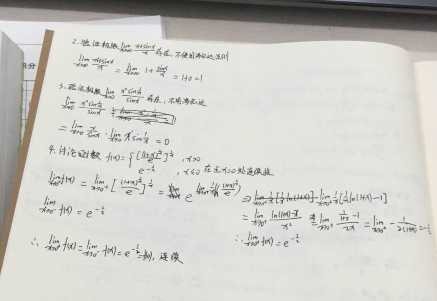 2. 验证极限 lim x→∞ (x+sinx)/x 存在, 不能用洛必达法则
lim x→∞ (x+sinx)/x = lim x→∞ 1 + sinx/x = 1+0 = 1
3. 验证极限 lim x→0 (x² sin 1/x)/sinx 存在, 不能用洛必达
lim x→0 (x² sin 1/x)/sinx
= lim x→0 x/sinx · lim x→0 x sin 1/x = 0
4. 讨论函数 f(x) = { [(1+x)^(1/x)/e]^(1/x), x>0
e^(-1/2), x≤0 在点 x=0 处连续性
lim x→0⁺ f(x) = lim x→0⁺ [(1+x)^(1/x)/e]^(1/x) = e
⇒ lim x→0⁺ 1/x [1/x ln(1+x) - 1]
lim x→0⁻ f(x) = e^(-1/2)
= lim x→0⁺ (ln(1+x) - x)/x² = lim x→0⁺ (1/(1+x) - 1)/2x = lim x→0⁺ - 1/2(1+x) = -1/2
∴ lim x→0⁺ f(x) = e^(-1/2)
∴ lim x→0⁺ f(x) = lim x→0⁻ f(x) = e^(-1/2) = f(0), 连续